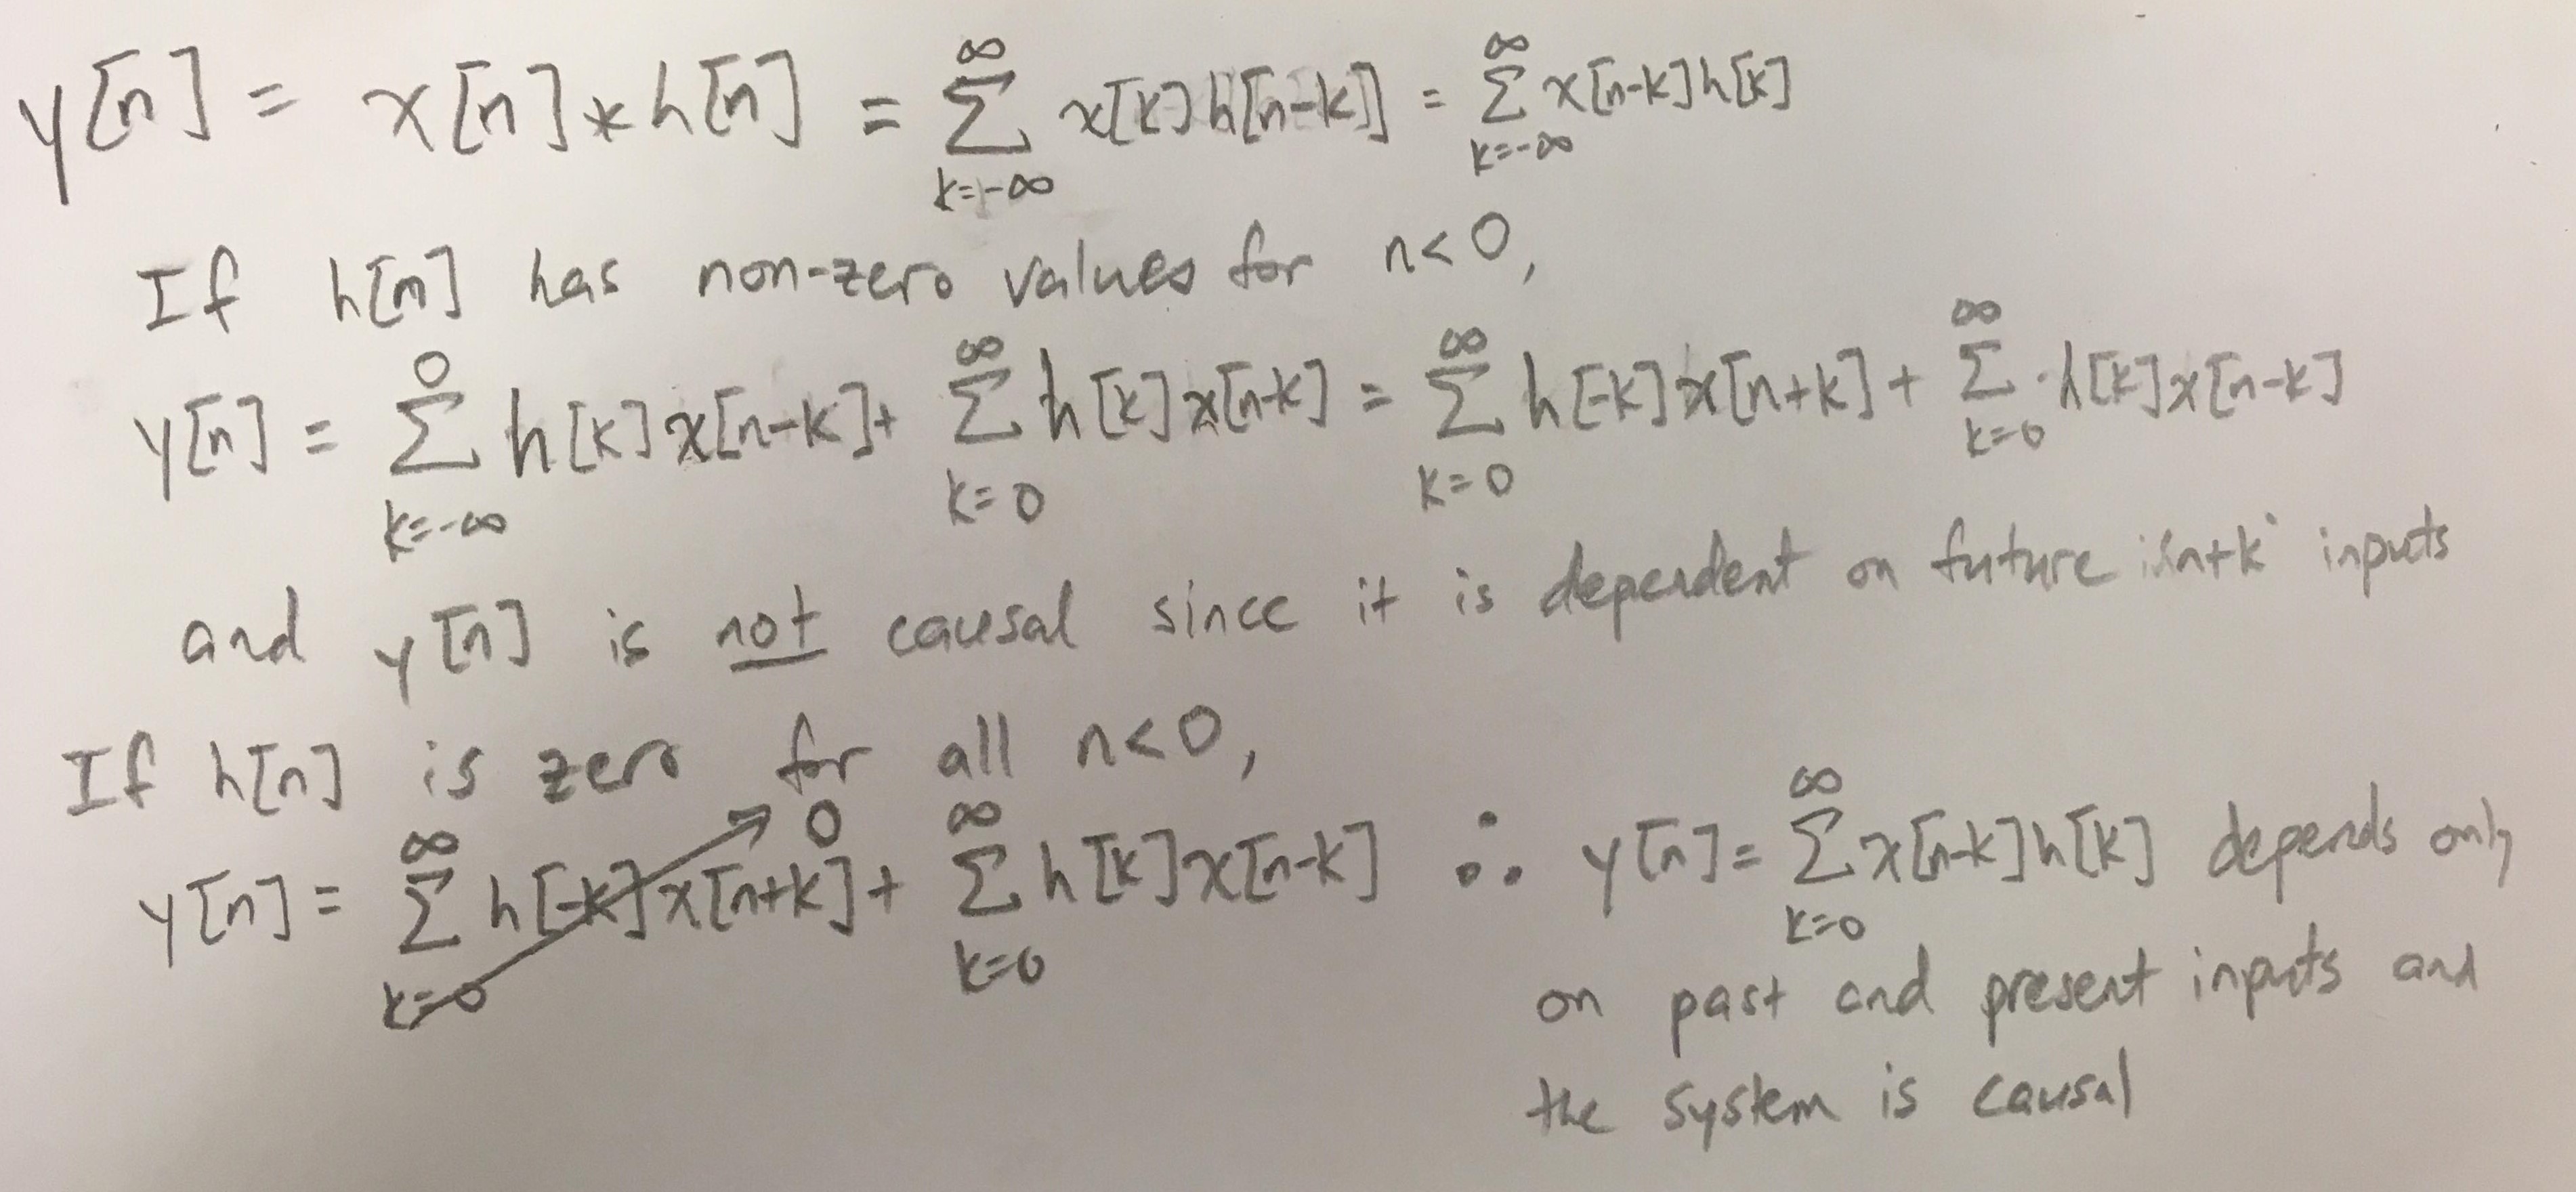 y[n] = x[n] * h[n] = ∑_{k=-∞}^{∞} x[k] h[n-k] = ∑_{k=-∞}^{∞} x[n-k] h[k]
If h[n] has non-zero values for n<0,
y[n] = ∑_{k=-∞}^{0} h[k] x[n-k] + ∑_{k=0}^{∞} h[k] x[n-k] = ∑_{k=0}^{∞} h[-k] x[n+k] + ∑_{k=0}^{∞} h[k] x[n-k]
and y[n] is not causal since it is dependent on future n+k inputs
If h[n] is zero for all n<0,
y[n] = ∑_{k=0}^{∞} h[-k] x[n+k] → 0 + ∑_{k=0}^{∞} h[k] x[n-k] ∴ y[n] = ∑_{k=0}^{∞} x[n-k] h[k] depends only
on past and present inputs and
the system is causal